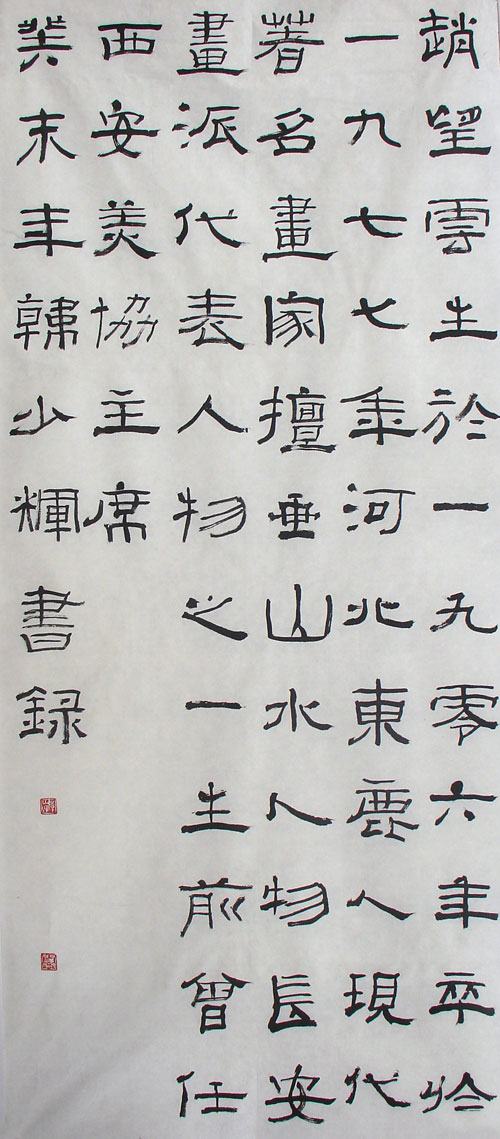 趙望雲生於一九零六年卒於
一九七七年河北東鹿人現代
著名畫家擅垂山水人物長安
畫派代表人物之一生前曾任
西安美協主席
癸未年韓少輝書録